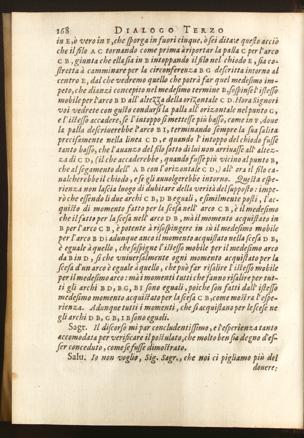 168 DIALOGO TERZO
in E, ò vero in E, che sporga in fuori cinque, ò sei dita: e questo acciò
che il filo A C tornando come prima à riportar la palla C per l'arco
C B, giunta che ella sia in B intoppando il filo nel chiodo E, sia co-
stretta à camminare per la circonferenza B G descritta intorno al
centro E, dal che vedremo quello che potrà far quel medesimo im-
peto, che dianzi concepito nel medesimo termine B, sospinse l'istesso
mobile per l'arco B D all'altezza della orizontale C D. Hora Signori
voi vedrete con gusto condursi la palla all'orizontale nel punto G,
e l'istesso accadere, se l'intoppo si mettesse più basso, come in F, doue
la palla descriuerebbe l'arco B I, terminando sempre la sua salita
precisamente nella linea C D, e quando l'intoppo del chiodo fusse
tanto basso, che l'auanzo del filo sotto di lui non arriuasse all'altez-
za di C D, (il che accaderebbe, quando fusse più vicino al punto B,
che al segamento dell'A B con l'orizontale C D,) all'ora il filo ca-
ualcherebbe il chiodo, e se gli auuolgerebbe intorno. Questa espe-
rienza non lascia luogo di dubitare della verità del supposto: impe-
rò che essendo li due archi C B, D B eguali, e similmente posti, l'ac-
quisto di momento fatto per la scesa nell'arco C B, è il medesimo
che il fatto per la scesa nell'arco D B, mà il momento acquistato in
B per l'arco C B, è potente à risospingere in sù il medesimo mobile
per l'arco B D; adunque anco il momento acquistato nella scesa D B,
è eguale à quello, che sospigne l'istesso mobile per il medesimo arco
da B in D, si che vniuersalmente ogni momento acquistato per la
scesa d'un arco è eguale à quello, che può far risalire l'istesso mobile
per il medesimo arco: mà i momenti tutti che fanno risalire per tut-
ti gli archi B D, B G, B I sono eguali, poiche son fatti dall'istesso
medesimo momento acquistato per la scesa C B, come mostra l'espe-
rienza. Adunque tutti i momenti, che si acquistano per le scese ne
gli archi D B, G B, I B sono eguali.
Sagr. Il discorso mi par concludentissimo, e l'esperienza tanto
accomodata per verificare il postulato, che molto ben sia degno d'es-
ser conceduto, come se fusse dimostrato.
Salu. Io non voglio, Sig. Sagr., che noi ci pigliamo più del
douere: